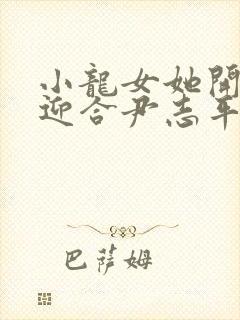 小龍女她開
迎合尹志平
巴薩姆